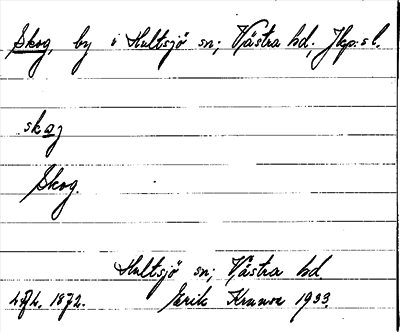 Skog, by i Hultsjö sn; Västra hd, Jkp:s l.
skoz
Skog.
Hultsjö sn; Västra hd
1872. Erik Kruuse 1933